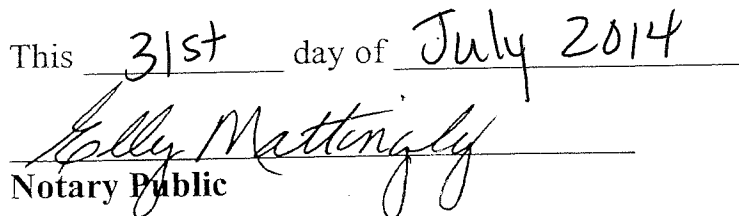 This 31st day of July 2014
Elly Mattingly
Notary Public